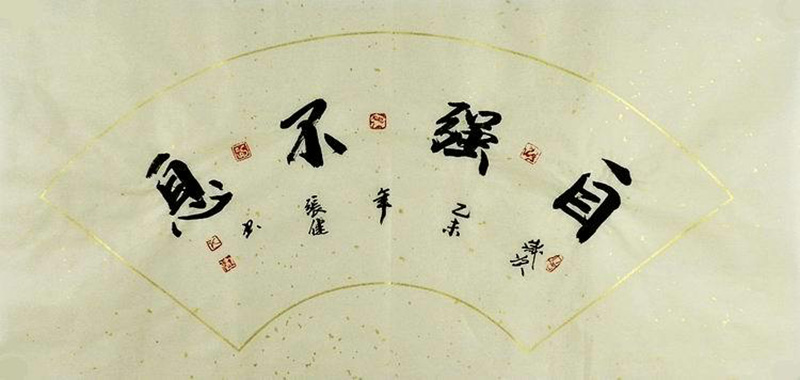 自强不息
乙未年張健书